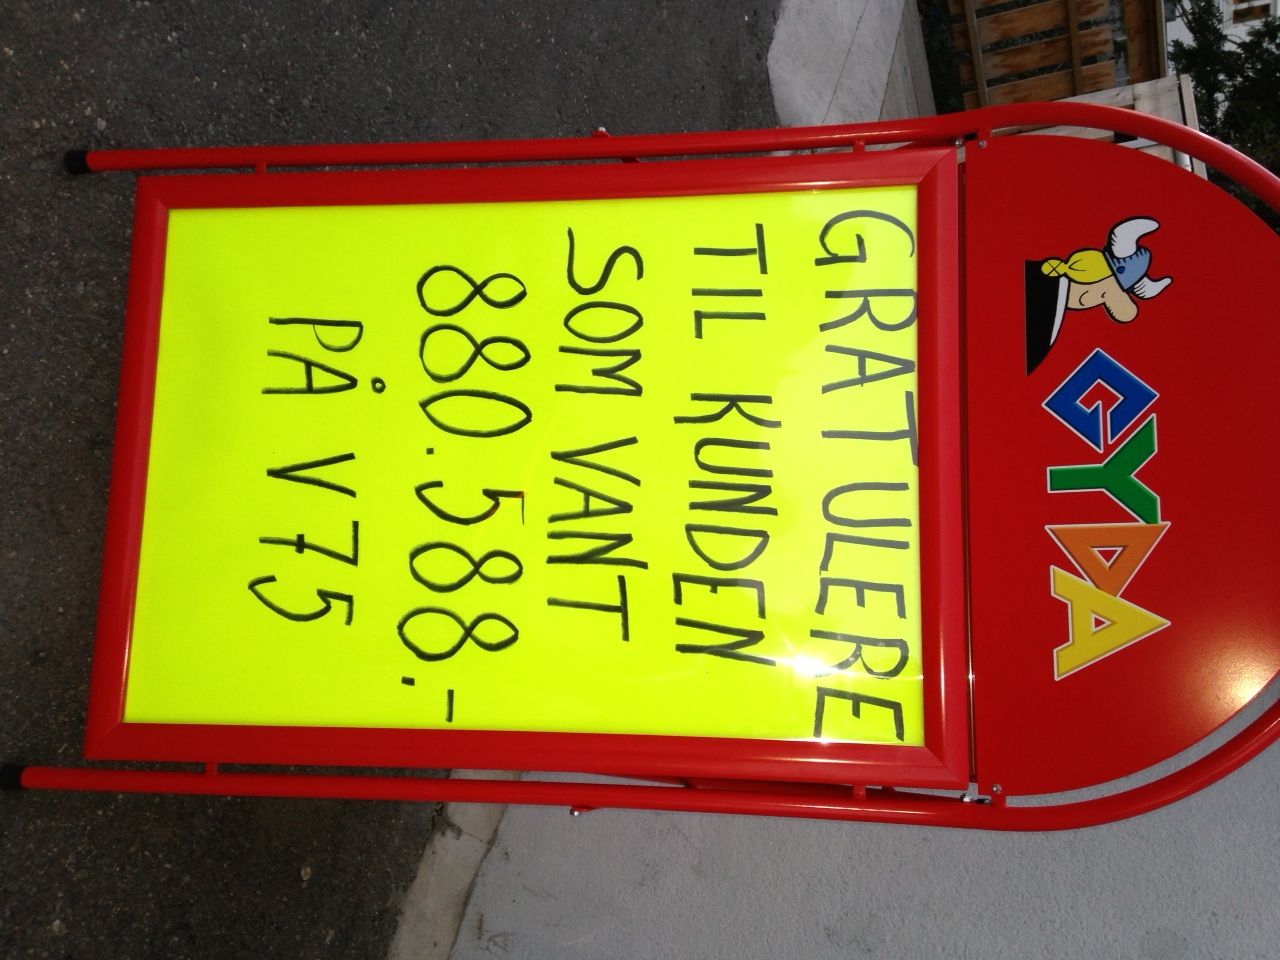 GYDA
GRATULERE
TIL KUNDEN
SOM VANT
880.588.-
PÅ V75